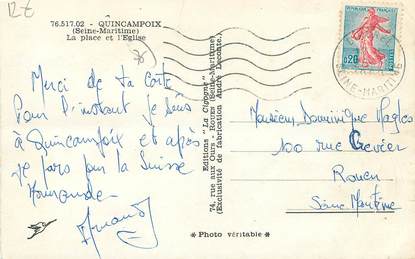 12€
76.517.02 - QUINCAMPOIX
(Seine-Maritime)
La place et l'Eglise
Merci de ta carte
Pour l'instant je suis
à Quincampoix et après
je pars pour la Suisse
Armand
Editions "La Cigogne"
74, rue aux Ours - ROUEN (Seine-Maritime)
(Exclusivité de fabrication André Leconte)
* Photo véritable *
REPUBLIQUE FRANÇAISE
0,20
SEINE-MARITIME
Monsieur Dominique
100 rue
Rouen
Seine Maritime